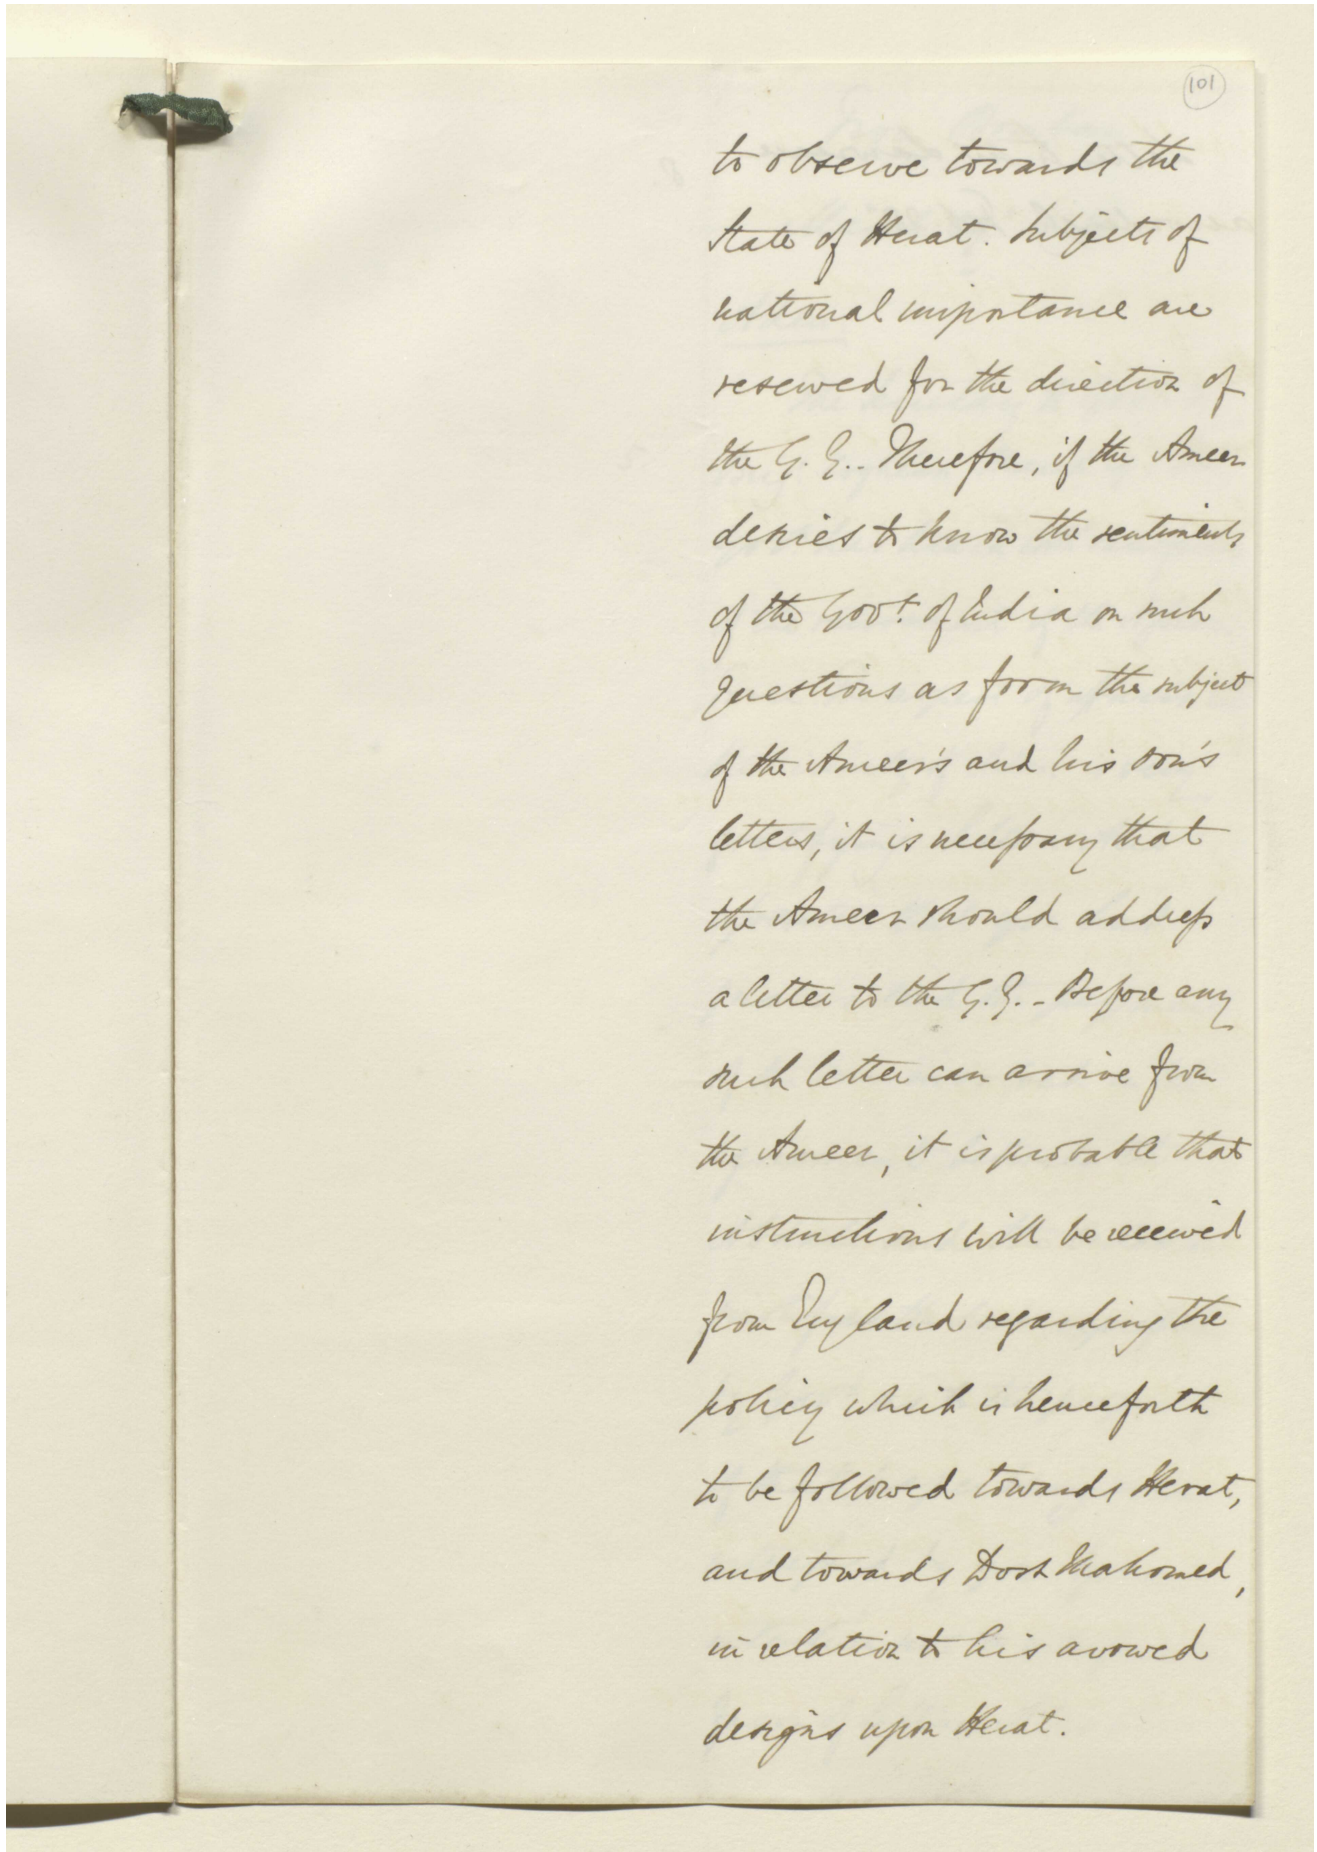 101
to observe towards the
State of Herat. Subjects of
national importance are
reserved for the direction of
the G. G.. Therefore, if the Ameer
desires to know the sentiments
of the Govt. of India on such
questions as form the subject
of the Ameer's and his son's
letters, it is necessary that
the Ameer should address
a letter to the G. G. - Before any
such letter can arrive from
the Ameer, it is probable that
instructions will be received
from England regarding the
policy which is henceforth
to be followed towards Herat,
and towards Dost Mahomed,
in relation to his avowed
designs upon Herat.